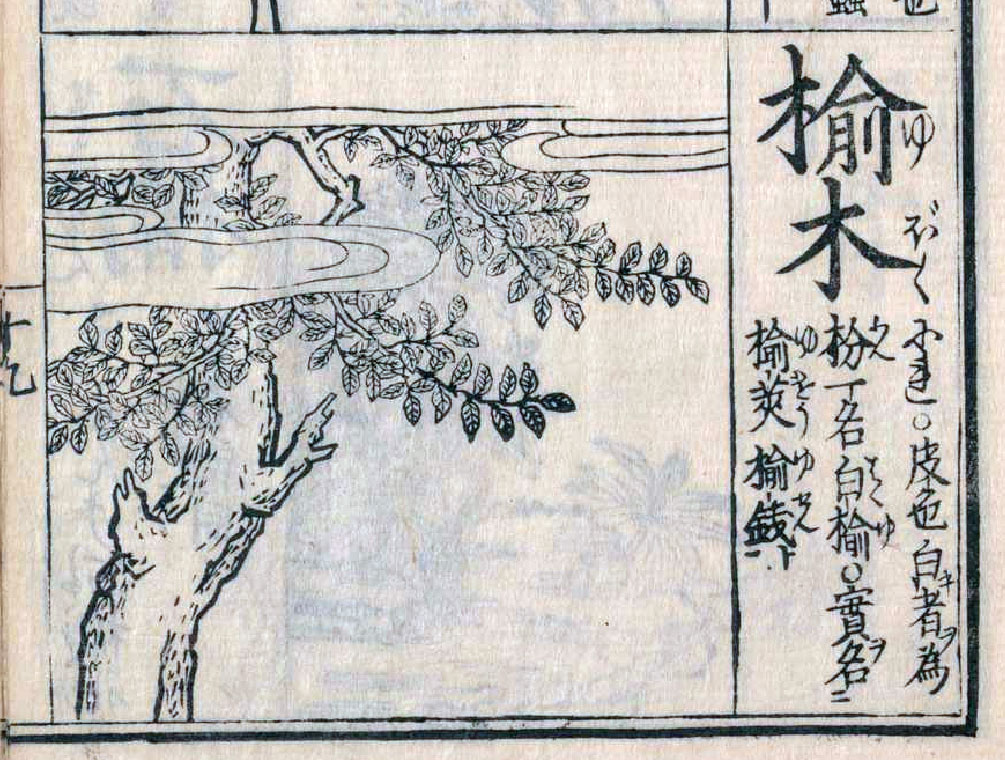 楡木
ゆぼく
にれ○皮色白キ者ヲ為
枌丁名白楡○實名ヲ二
はくゆ
楡莢 楡錢ト
ゆ ゆせん